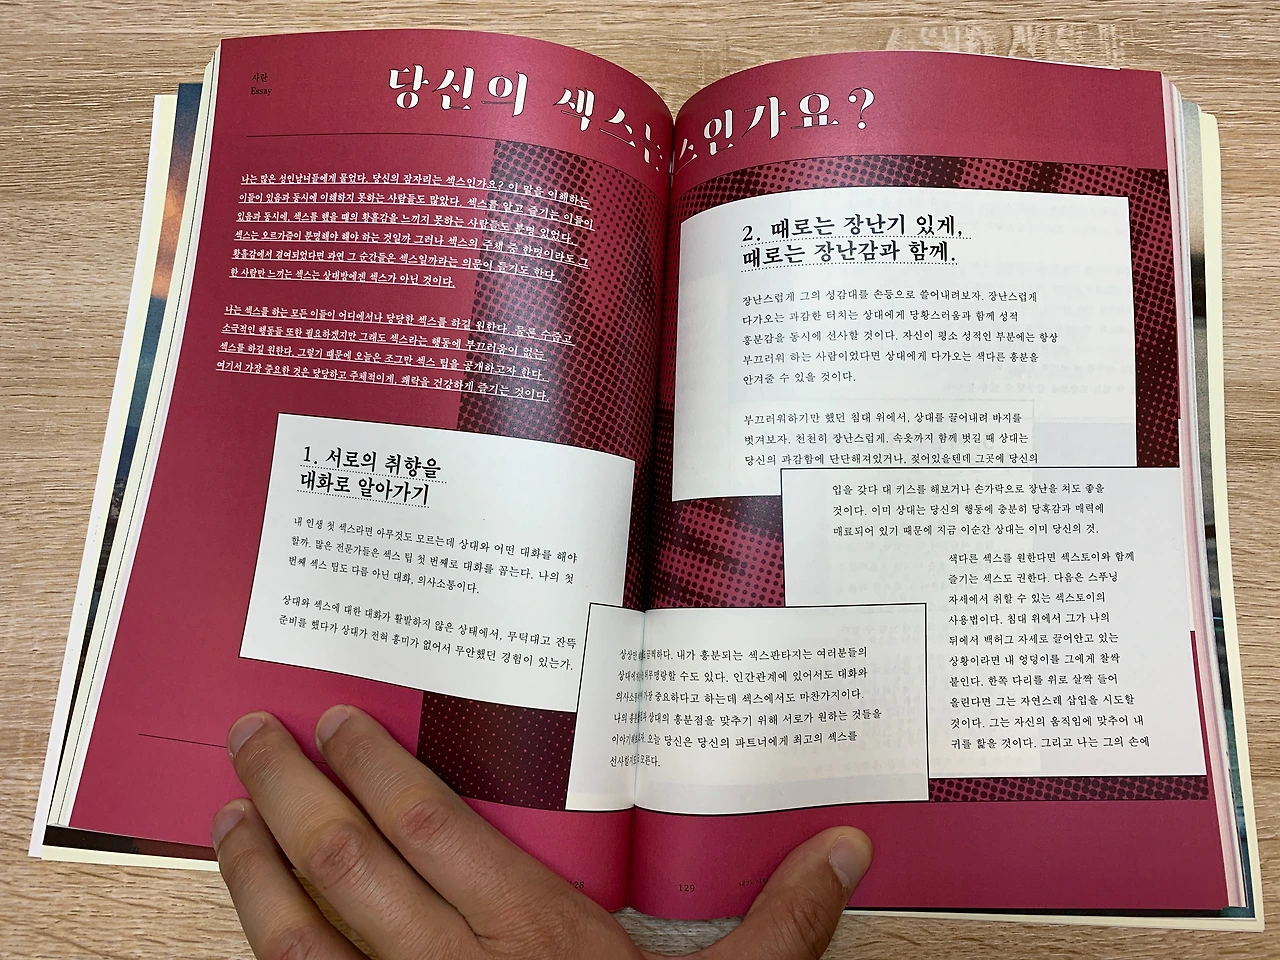 사랑
Essay
당신의 섹스는 섹스인가요?
나는 많은 성인남녀들에게 물었다. 당신의 잠자리는 섹스인가요? 이 말을 이해하는
이들이 있음과 동시에 이해하지 못하는 사람들도 많았다. 섹스를 알고 즐기는 이들이
있음과 동시에, 섹스를 했을 때의 황홀감을 느끼지 못하는 사람들도 분명 있었다.
섹스는 오르가즘이 분명해야 해야 하는 것일까 그러나 섹스의 주체 중 한명이라도 그
황홀감에서 결여되었다면 과연 그 순간들은 섹스일까라는 의문이 들기도 한다.
한 사람만 느끼는 섹스는 상대방에겐 섹스가 아닌 것이다.
나는 섹스를 하는 모든 이들이 어디에서나 당당한 섹스를 하길 원한다. 물론 수줍고
소극적인 행동들 또한 필요하겠지만 그래도 섹스라는 행동에 부끄러움이 없는
섹스를 하길 원한다. 그렇기 때문에 오늘은 조그만 섹스 팁을 공개하고자 한다.
여기서 가장 중요한 것은 당당하고 주체적이게, 쾌락을 건강하게 즐기는 것이다.
1. 서로의 취향을
대화로 알아가기
내 인생 첫 섹스라면 아무것도 모르는데 상대와 어떤 대화를 해야
할까. 많은 전문가들은 섹스 팁 첫 번째로 대화를 꼽는다. 나의 첫
번째 섹스 팁도 다름 아닌 대화, 의사소통이다.
상대와 섹스에 대한 대화가 활발하지 않은 상태에서, 무턱대고 잔뜩
준비를 했다가 상대가 전혀 흥미가 없어서 무안했던 경험이 있는가.
상상만 해도 끔찍하다. 내가 흥분되는 섹스판타지는 여러분들의
상대에겐 터무맹랑할 수도 있다. 인간관계에 있어서도 대화와
의사소통이 가장 중요하다고 하는데 섹스에서도 마찬가지이다.
나의 흥분점과 상대의 흥분점을 맞추기 위해 서로가 원하는 것들을
이야기해보자. 오늘 당신은 당신의 파트너에게 최고의 섹스를
선사할지도 모른다.
2. 때로는 장난기 있게,
때로는 장난감과 함께.
장난스럽게 그의 성감대를 손등으로 쓸어내려보자. 장난스럽게
다가오는 과감한 터치는 상대에게 당황스러움과 함께 성적
흥분감을 동시에 선사할 것이다. 자신이 평소 성적인 부분에는 항상
부끄러워 하는 사람이었다면 상대에게 다가오는 색다른 흥분을
안겨줄 수 있을 것이다.
부끄러워하기만 했던 침대 위에서, 상대를 끌어내려 바지를
벗겨보자. 천천히 장난스럽게. 속옷까지 함께 벗길 때 상대는
당신의 과감함에 단단해져있거나, 젖어있을텐데 그곳에 당신의
입을 갖다 대 키스를 해보거나 손가락으로 장난을 쳐도 좋을
것이다. 이미 상대는 당신의 행동에 충분히 당혹감과 매력에
매료되어 있기 때문에 지금 이순간 상대는 이미 당신의 것.
색다른 섹스를 원한다면 섹스토이와 함께
즐기는 섹스도 권한다. 다음은 스푸닝
자세에서 취할 수 있는 섹스토이의
사용법이다. 침대 위에서 그가 나의
뒤에서 백허그 자세로 끌어안고 있는
상황이라면 내 엉덩이를 그에게 찰싹
붙인다. 한쪽 다리를 위로 살짝 들어
올린다면 그는 자연스레 삽입을 시도할
것이다. 그는 자신의 움직임에 맞추어 내
귀를 핥을 것이다. 그리고 나는 그의 손에
128
129